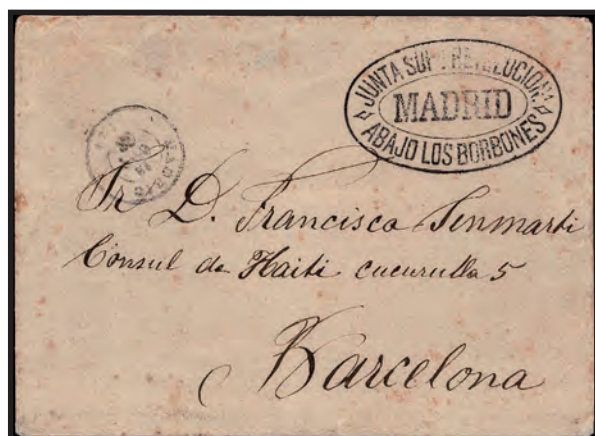 JUNTA SUP. REVOLUCION.
MADRID
ABAJO LOS BORBONES
MADRID
Sr D. Francisco Senmarti
Consul de Haiti cucurulla 5
Barcelona